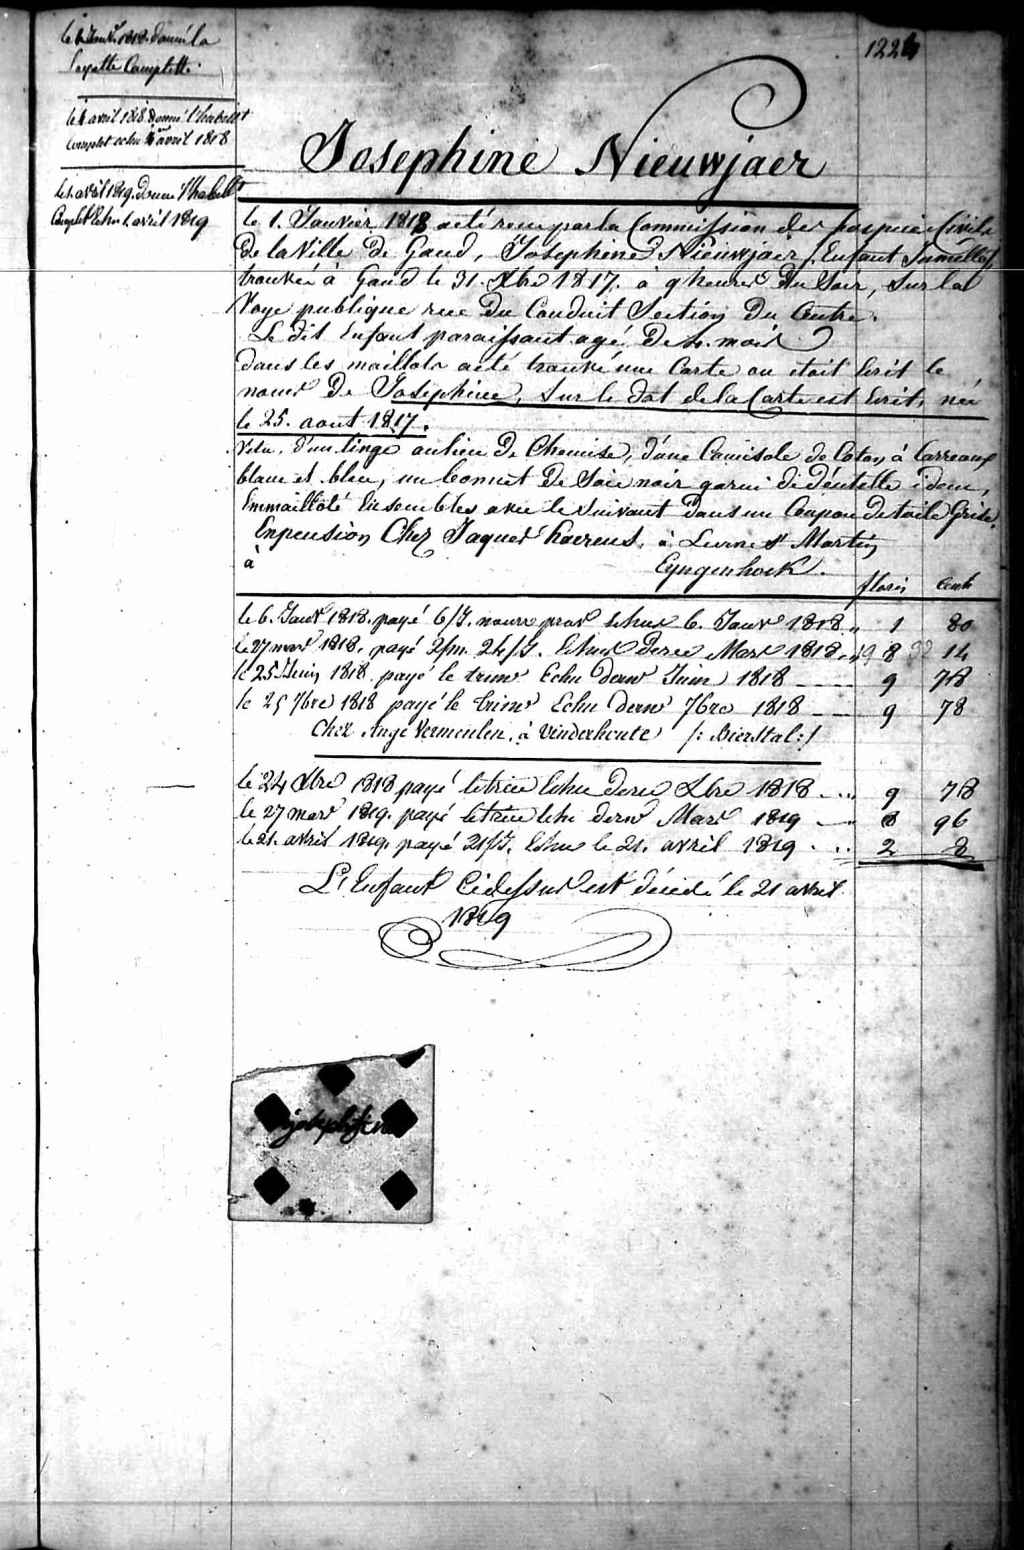 122
le 6 Janv. 1818. donné la
layette Complette.
le 1 avril 1818 donné l'habill.t
complet echu 1 avril 1818
le 1. avril 1819. donné l'habill.t
Complet Echu 1. avril 1819
Josephine Nieuwjaer
le 1. Janvier 1818 a été recu par la Commission des hospices Civils
de la Ville de Gand, Josephine Nieuwjaer /: Enfant Jumelle :/
trouvée à Gand le 31. Xbre 1817. à 9 heures du Soir, Sur la
Voye publique rue du Conduit Section du Centre.
Le dit Enfant paraissant agé de 4. mois
dans les maillots a été trouvé une Carte ou étoit Ecrit le
nom de Josephine, Sur le dot de la Carte est Ecrit, née
le 25. aout 1817.
Vetu. d'un linge au lieu de Chemise, d'une Camisole de Coton à Carreaux
blanc et bleu, un bonnet de Soie noir garni de déntelle idem,
Emmailloté Ensembles avec le Suivant dans un Coupon de toile Grise.
Enpension Chez Jaques haerens, à Leerne St Martin
à Eyngenhoek.
florins Cents
le 6. Janv 1818. payé 6/J. nourr prov Echus 6. Janv 1818 „ 1 80
le 27 mars 1818. payé 2/m. 24/J. Echus dern Mars 1818. „ 8 14
le 25 Juin 1818. payé le trim Echu dern Juin 1818 9 78
le 25 7bre 1818 payé le trim Echu dern 7bre 1818 9 78
Chez Ange Vermeulen, à Vinderhoute /: Bierstal :/
le 24 Xbre 1818 payé le trim Echu dern Xbre 1818 9 78
le 27 mars 1819. payé le trim Echu dern Mars 1819 8 96
le 21. avril 1819. payé 21/J. Echus le 21. avril 1819 2 8
L'Enfant Cidessus est décédé le 21 avril
1819
josephine